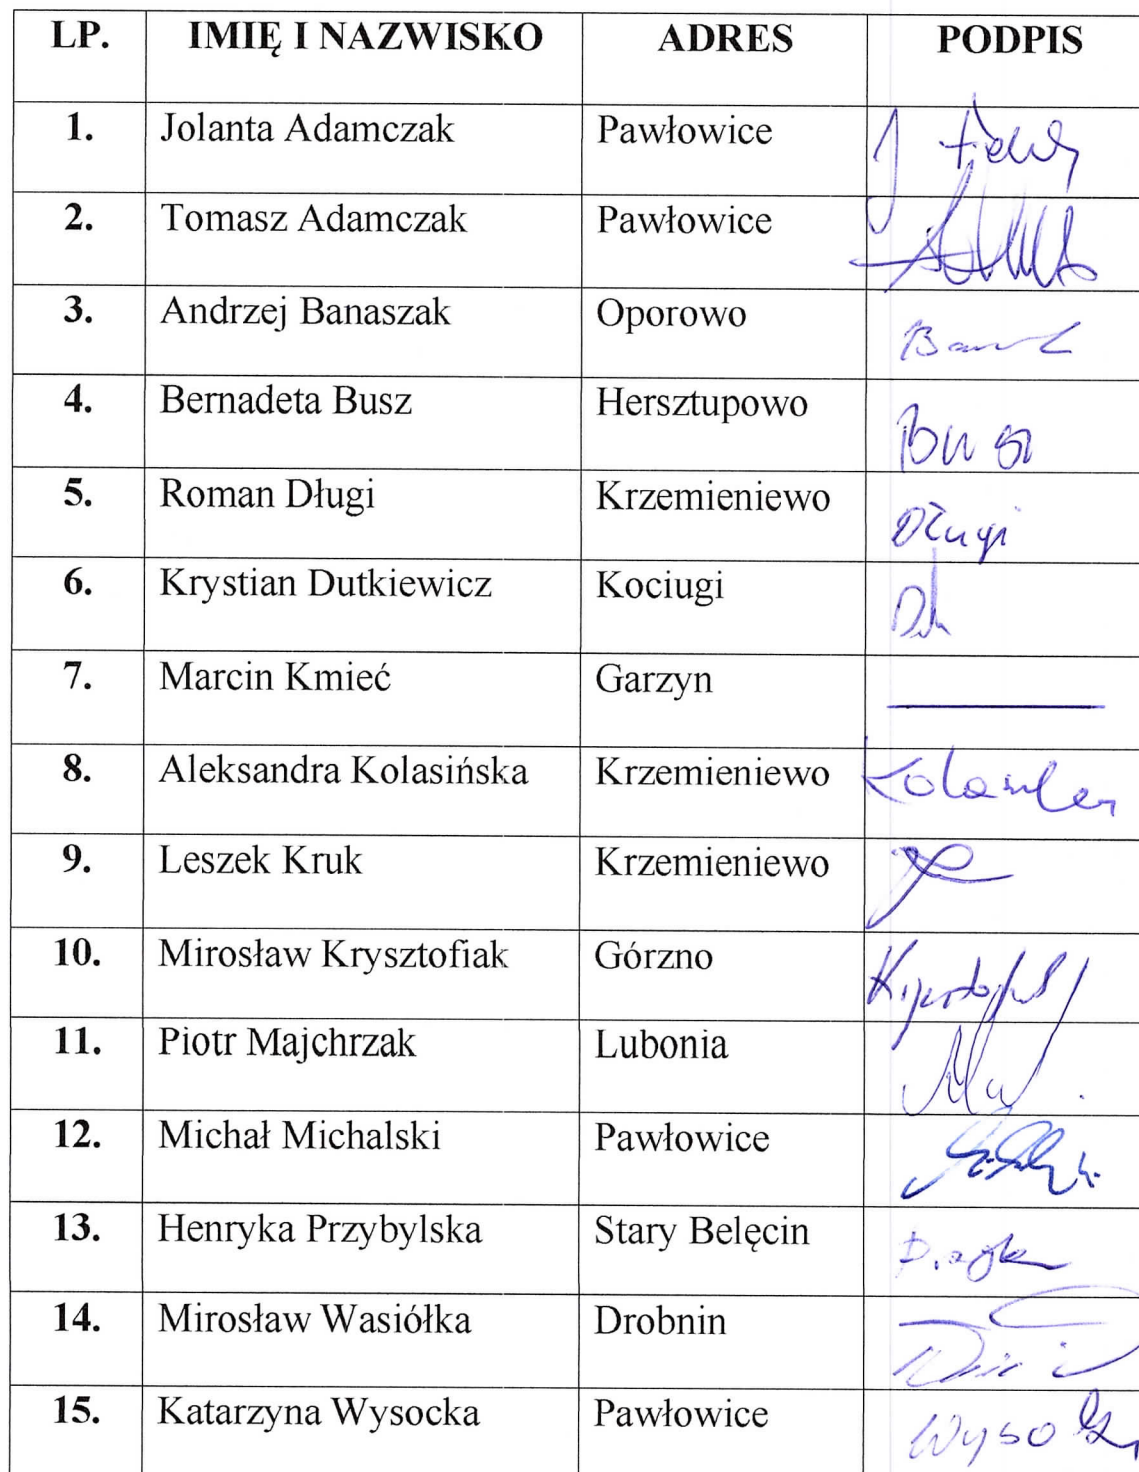 LP. IMIĘ I NAZWISKO ADRES PODPIS
1. Jolanta Adamczak Pawłowice
2. Tomasz Adamczak Pawłowice
3. Andrzej Banaszak Oporowo
4. Bernadeta Busz Hersztupowo
5. Roman Długi Krzemieniewo Długi
6. Krystian Dutkiewicz Kociugi
7. Marcin Kmieć Garzyn
8. Aleksandra Kolasińska Krzemieniewo
9. Leszek Kruk Krzemieniewo
10. Mirosław Krysztofiak Górzno
11. Piotr Majchrzak Lubonia
12. Michał Michalski Pawłowice
13. Henryka Przybylska Stary Belęcin
14. Mirosław Wasiółka Drobnin
15. Katarzyna Wysocka Pawłowice